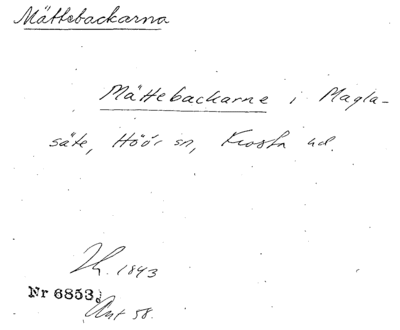 Mättebackarna
Mättebackarne i Magla-
säte, Höör sn, Frosta hd.
1843
Nr 6853.
58.